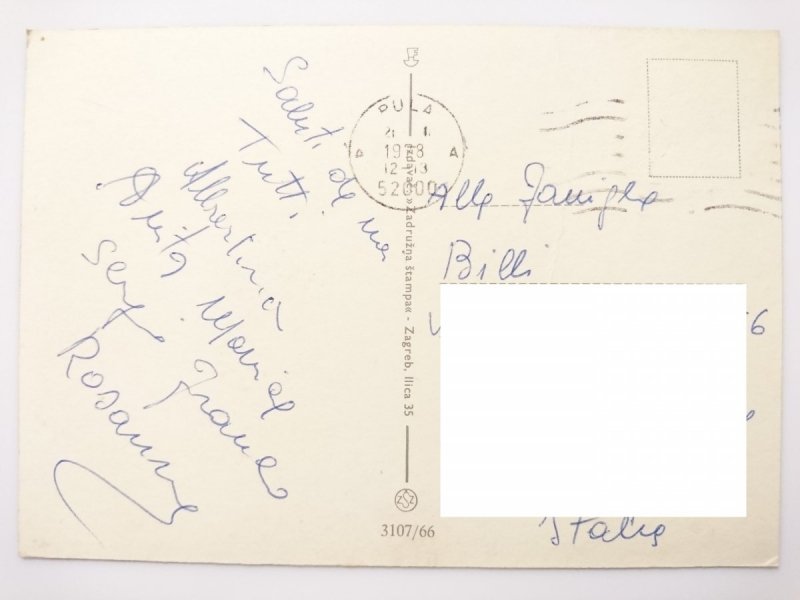 Saluti da noi
Tutti
Albertina
Anita Marica
Sergio Franco
Rosanna
PULA
1978
12-13
A A
52000
Izdavač: »Zadružna štampa« - Zagreb, Ilica 35
3107/66
Alla Famiglia
Billi
V
6
Italia